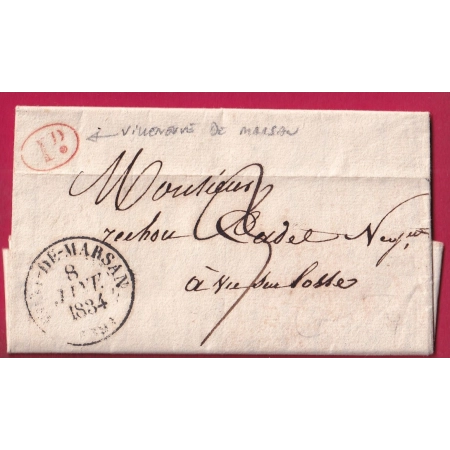 P.P.
← VILLENEUVE DE MARSAN
Monsieur
Cadet Neg.t
à Vic sur losse
3
DE-MARSAN
8
JANV
1834